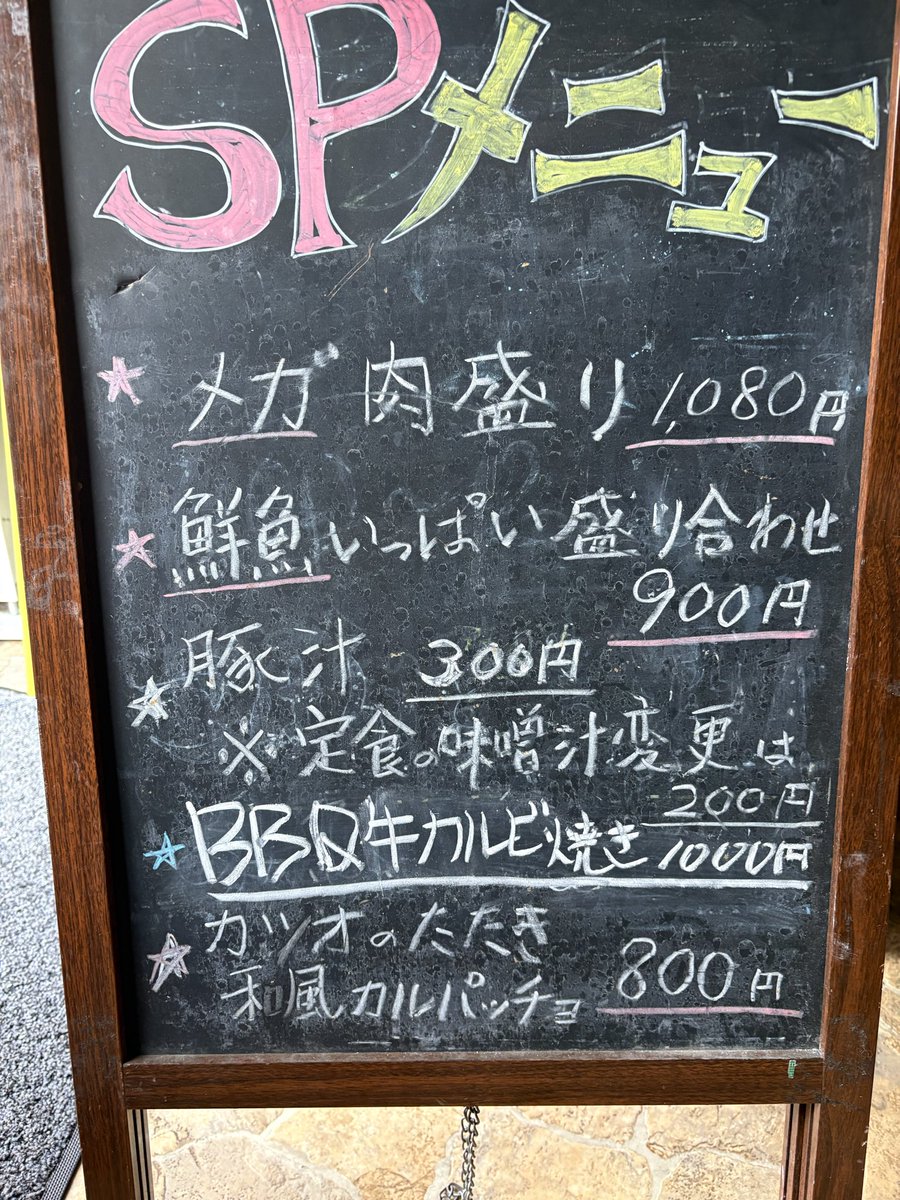 SPメニュー
メガ 肉盛り 1,080円
鮮魚いっぱい盛り合わせ
900円
豚汁 300円
※定食の味噌汁変更は
200円
BBQ牛カルビ焼き 1000円
カツオのたたき
和風カルパッチョ 800円